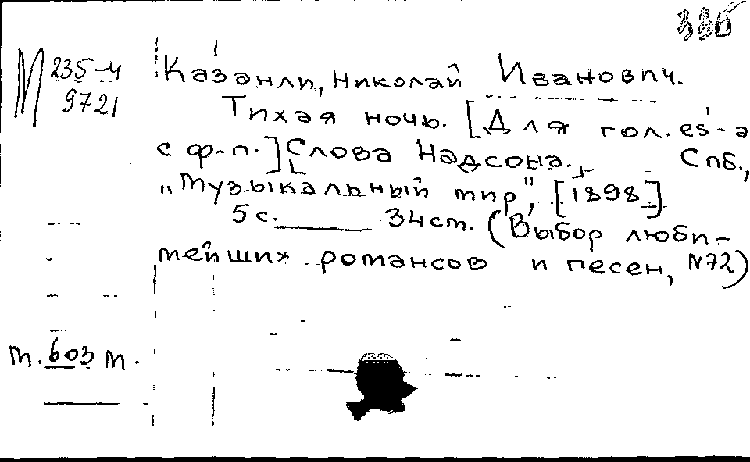 М 235-4
9721
Казанли, Николай Иванович.
Тихая ночь. [Для гол. es¹-a
с ф.-п.] Слова Надсона.
Спб.,
„Музыкальный мир", [1898]
5 с. 34 cm. (Выбор люби-
мейших романсов и песен, №72)
м. 603 м.